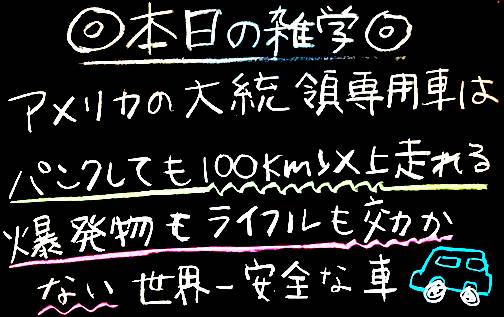 ◎本日の雑学◎
アメリカの大統領専用車は
パンクしても100Km以上走れる
爆発物もライフルも効力が
ない世界一安全な車